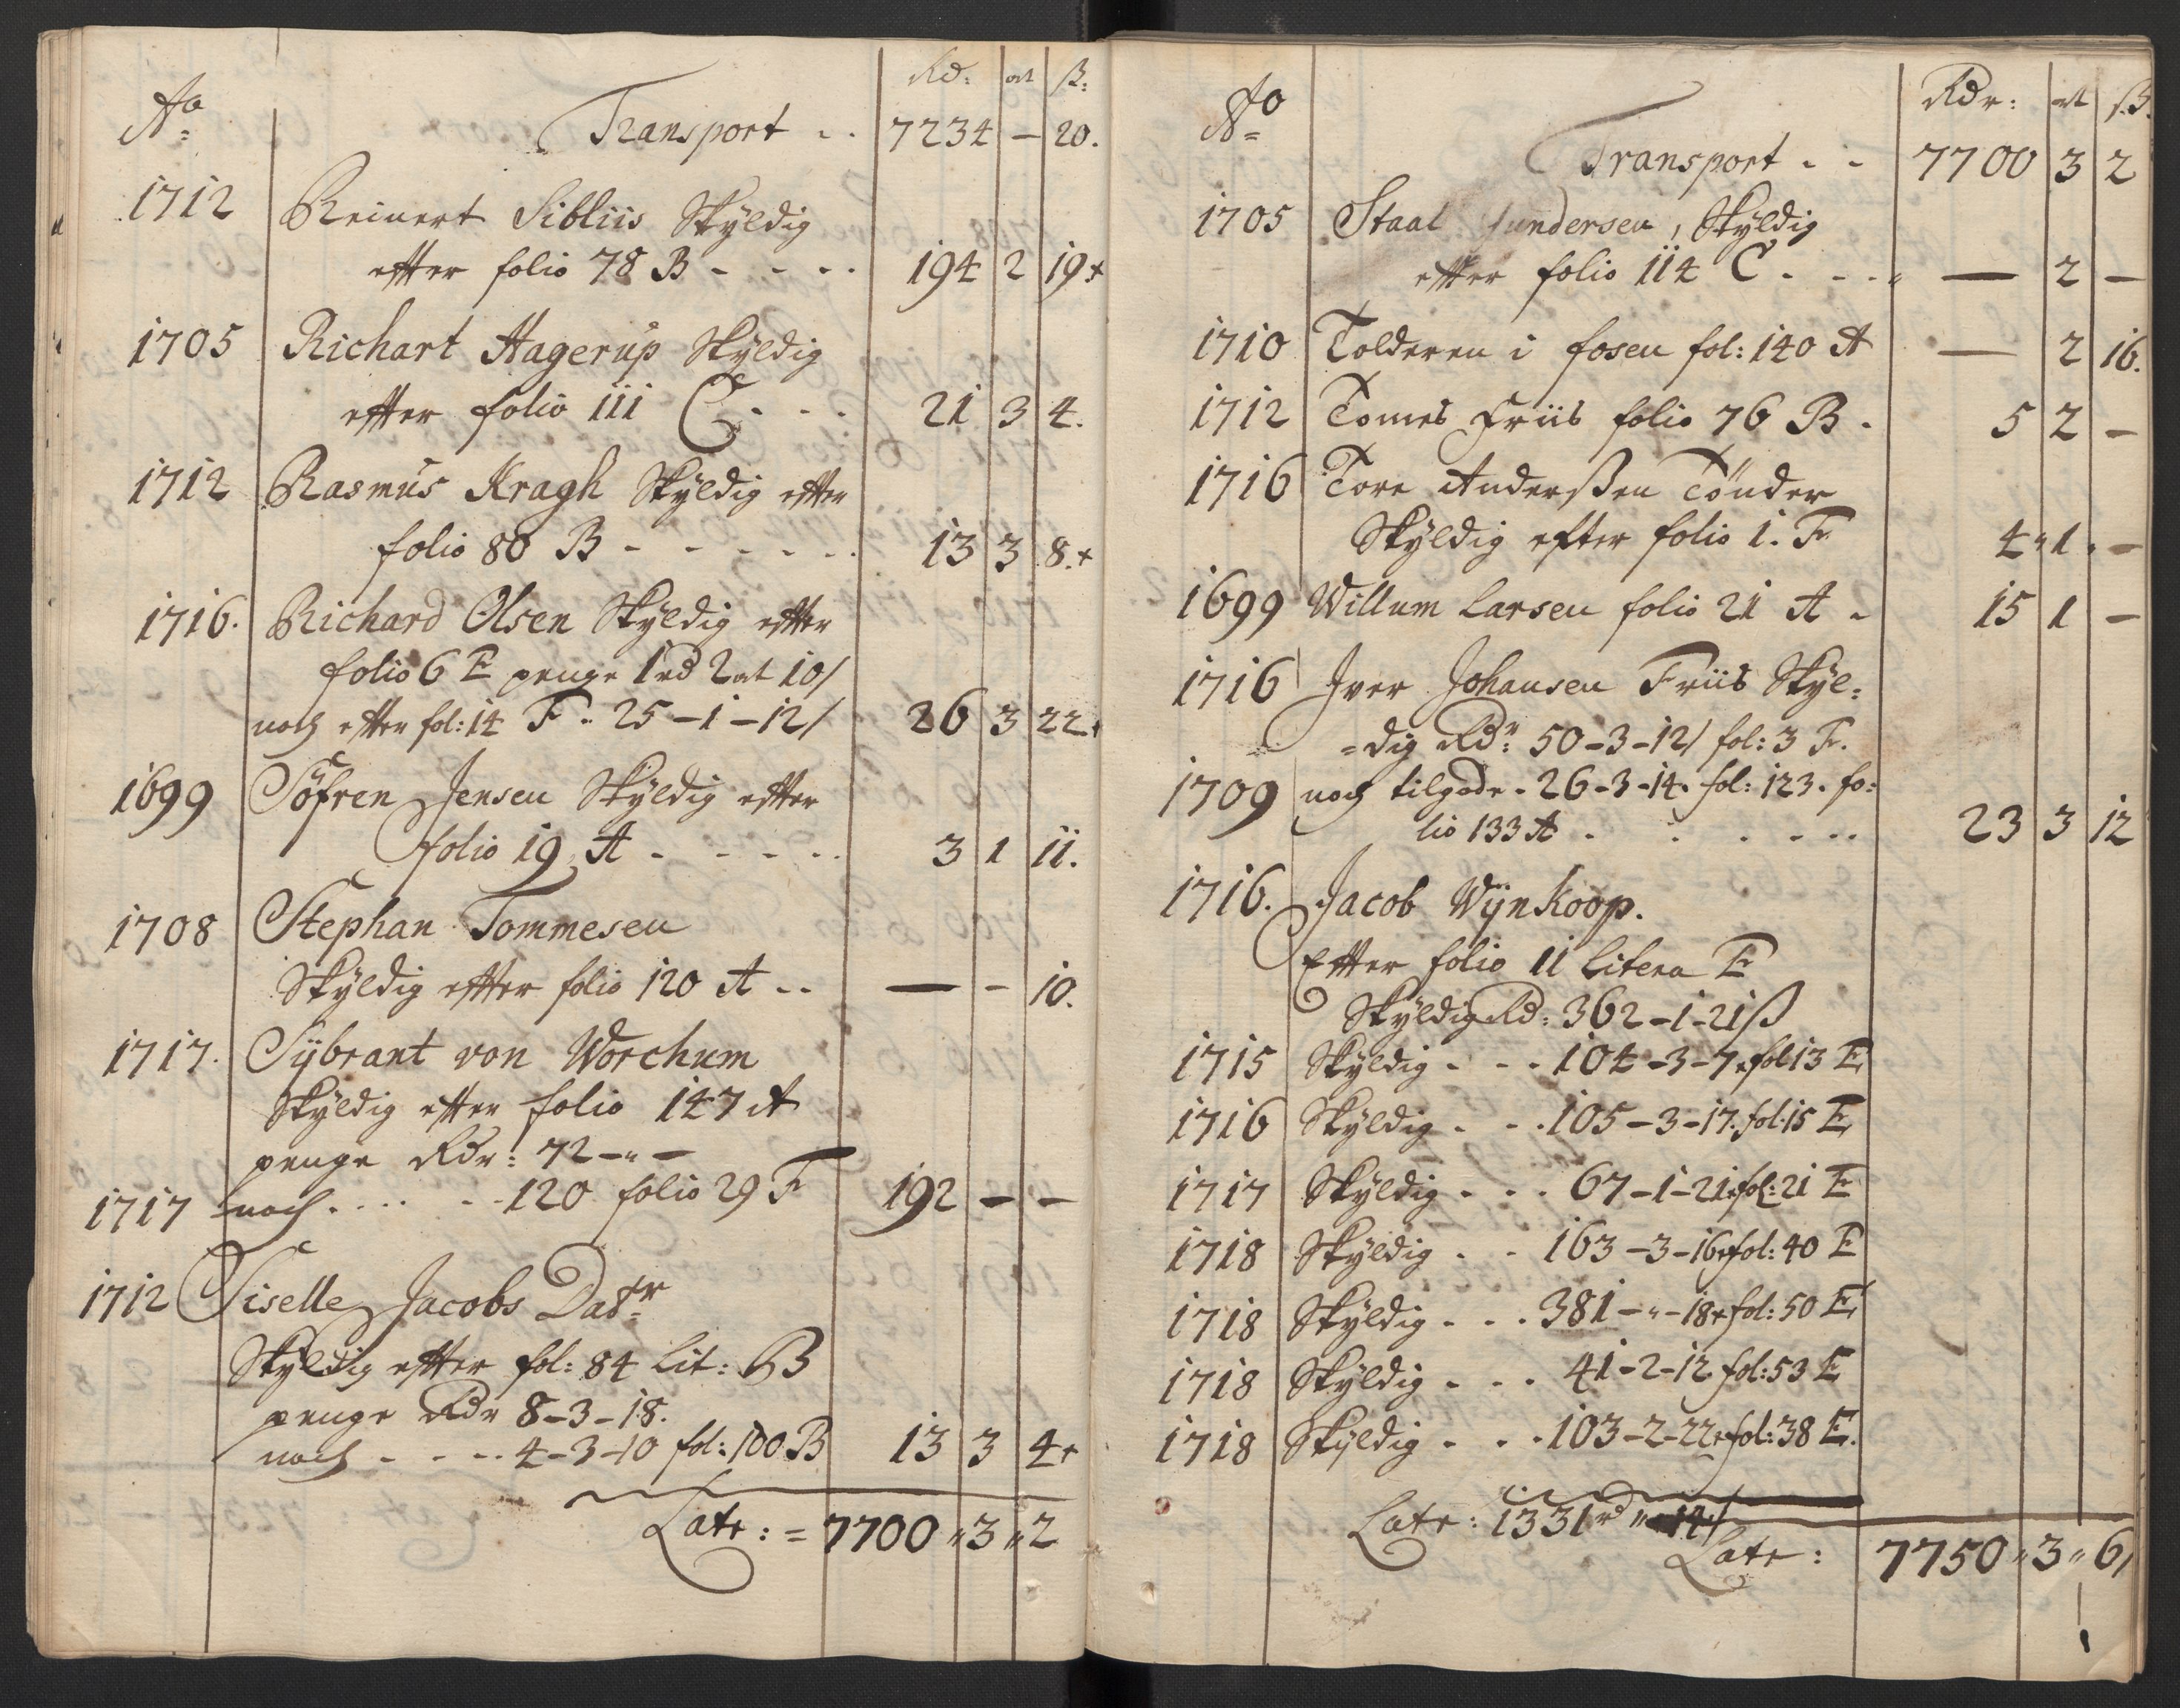 Rd: ort ß:
Ao
Transport .. 7234 — 20.
1712 Reinert Sibliis Skÿldig
efter folio 78 B - - - - 194 2 19+
1705 Richart Hagerup Skÿldig
efter folio 111 C - - - 21 3 4.
1712 Rasmus Kragh Skÿldig efter
folio 80 B - - - - - - 13 3 8.+
1716. Richard Olsen Skÿldig efter
folio 6 E penge 1 rd 2 ort 10/
noch efter fol: 14 F - 25-1-12/ 26 3 22+
1699 Söfren Jensen Skÿldig efter
folio 19 A - - - - - 3 1 11.
1708 Stephan Tommesen
Skÿldig efter folio 120 A .. — — 10.
1717. Sÿbrant von Worchum
Skÿldig efter folio 147 A
penge Rdr: 72-"-
1717 noch . . . . - - 120 folio 29 F 192 — —
1712 Siselle Jacobs Datr
Skÿldig efter fol: 84 Lit: B
penge Rdr 8-3-18.
noch - - - .. 4-3-10 fol: 100 B 13 3 4+
Latr: = 7700 " 3 " 2
Rdr: ort ß.
Ao
Transport - - 7700 3 2
1705 Staal Gundersen, Skÿldig
efter folio 114 C - - - - — 2 —
1710 Tolderen i fosen fol: 140 A — 2 16.
1712 Tomes Friis folio 76 B . 5 2 —
1716 Tore Anderßen Tönder
Skÿldig efter folio 1. F 4 " 1 " —
1699 Willum Larsen folio 21 A - 15 1 —
1716 Iver Johansen Friis Skÿl=
=dig Rdr: 50-3-12/ fol: 3 F.
1709 noch tilgode - 26-3-14. fol: 123. fo:
lio 133 A - . . - - .. 23 3 12
1716. Jacob Wÿnkoop.
Efter folio 11 Litera E
Skÿldig Rd: 362-1-21 ß
1715 Skÿldig - - - 104-3-7+ fol 13 E
1716 Skÿldig - - . 105-3-17. fol: 15 E
1717 Skÿldig - - - 67-1-21+ fol: 21 E
1718 Skÿldig - - 163-3-16+ fol: 40 E
1718 Skÿldig - - . 381-"-18+ fol: 50 E
1718 Skÿldig - - . 41-2-12 fol: 53 E
1718 Skÿldig - - . 103-2-22+ fol: 38 E.
Latr: 1331 rd " 14/
Latr: 7750 " 3 " 6/